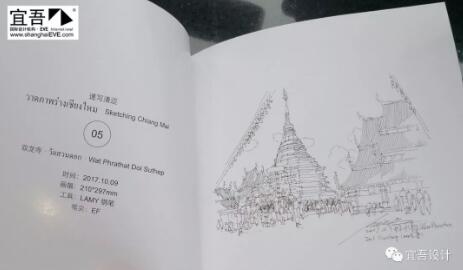 宜吾®
国际设计机构 · EVE
www.shanghaiEVE.com
速写清迈
วาดภาพร่างเชียงใหม่ Sketching Chiang Mai
05
双龙寺 · วัดสวนดอก · Wat Phrathat Doi Suthep
时间：2017.10.09
画幅：210*297mm
工具：LAMY 钢笔
笔尖：EF
宜吾设计